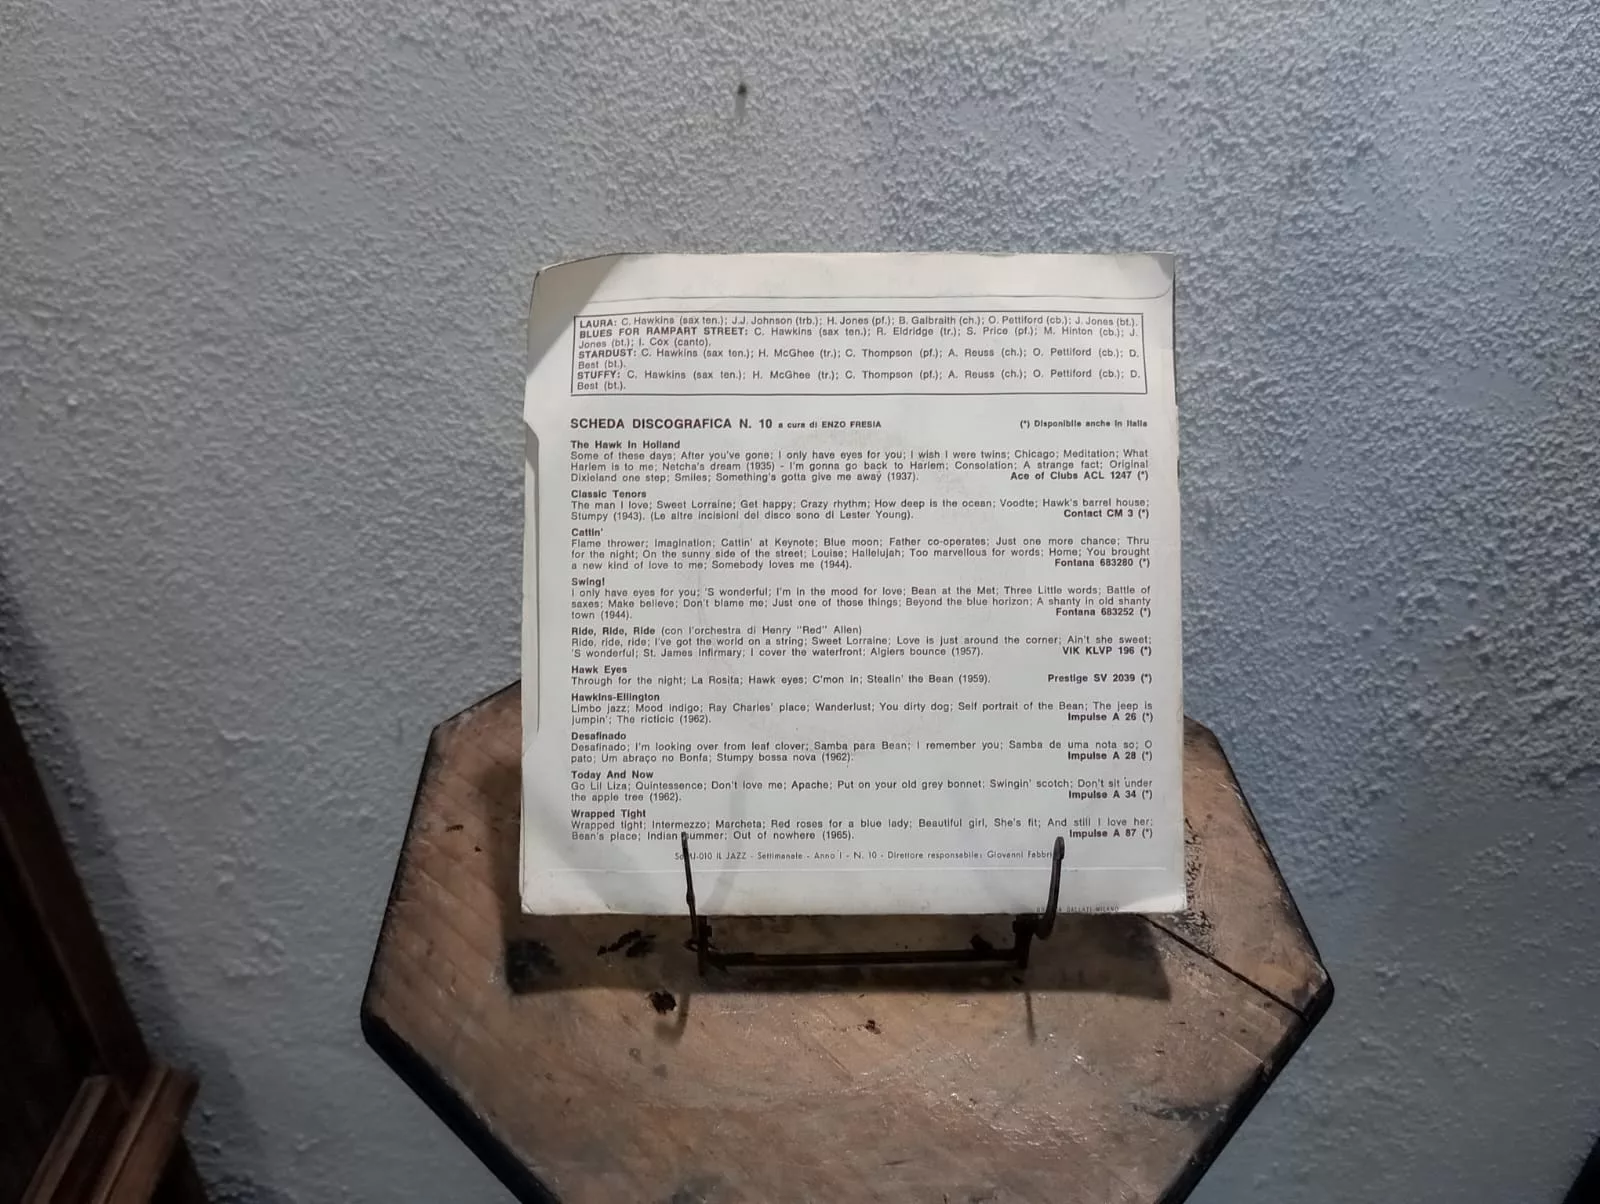 LAURA: C. Hawkins (sax ten.); J.J. Johnson (trb.); H. Jones (pf.); B. Galbraith (ch.); O. Pettiford (cb.); J. Jones (bt.).
BLUES FOR RAMPART STREET: C. Hawkins (sax ten.); R. Eldridge (tr.); S. Price (pf.); M. Hinton (cb.); J.
Jones (bt.); I. Cox (canto).
STARDUST: C. Hawkins (sax ten.); H. McGhee (tr.); C. Thompson (pf.); A. Reuss (ch.); O. Pettiford (cb.); D.
Best (bt.).
STUFFY: C. Hawkins (sax ten.); H. McGhee (tr.); C. Thompson (pf.); A. Reuss (ch.); O. Pettiford (cb.); D.
Best (bt.).
SCHEDA DISCOGRAFICA N. 10 a cura di ENZO FRESIA (*) Disponibile anche in Italia
The Hawk In Holland
Some of these days; After you've gone; I only have eyes for you; I wish I were twins; Chicago; Meditation; What
Harlem is to me; Netcha's dream (1935) - I'm gonna go back to Harlem; Consolation; A strange fact; Original
Dixieland one step; Smiles; Something's gotta give me away (1937). Ace of Clubs ACL 1247 (*)
Classic Tenors
The man I love; Sweet Lorraine; Get happy; Crazy rhythm; How deep is the ocean; Voodte; Hawk's barrel house;
Stumpy (1943). (Le altre incisioni del disco sono di Lester Young). Contact CM 3 (*)
Cattin'
Flame thrower; Imagination; Cattin' at Keynote; Blue moon; Father co-operates; Just one more chance; Thru
for the night; On the sunny side of the street; Louise; Hallelujah; Too marvellous for words; Home; You brought
a new kind of love to me; Somebody loves me (1944). Fontana 683280 (*)
Swing!
I only have eyes for you; 'S wonderful; I'm in the mood for love; Bean at the Met; Three Little words; Battle of
saxes; Make believe; Don't blame me; Just one of those things; Beyond the blue horizon; A shanty in old shanty
town (1944). Fontana 683252 (*)
Ride, Ride, Ride (con l'orchestra di Henry "Red" Allen)
Ride, ride, ride; I've got the world on a string; Sweet Lorraine; Love is just around the corner; Ain't she sweet;
'S wonderful; St. James Infirmary; I cover the waterfront; Algiers bounce (1957). VIK KLVP 196 (*)
Hawk Eyes
Through for the night; La Rosita; Hawk eyes; C'mon in; Stealin' the Bean (1959). Prestige SV 2039 (*)
Hawkins-Ellington
Limbo jazz; Mood indigo; Ray Charles' place; Wanderlust; You dirty dog; Self portrait of the Bean; The jeep is
jumpin'; The ricticic (1962). Impulse A 26 (*)
Desafinado
Desafinado; I'm looking over from leaf clover; Samba para Bean; I remember you; Samba de uma nota so; O
pato; Um abraço no Bonfa; Stumpy bossa nova (1962). Impulse A 28 (*)
Today And Now
Go Lil Liza; Quintessence; Don't love me; Apache; Put on your old grey bonnet; Swingin' scotch; Don't sit under
the apple tree (1962). Impulse A 34 (*)
Wrapped Tight
Wrapped tight; Intermezzo; Marcheta; Red roses for a blue lady; Beautiful girl, She's fit; And still I love her;
Bean's place; Indian summer; Out of nowhere (1965). Impulse A 87 (*)
U-010 IL JAZZ - Settimanale - Anno I - N. 10 - Direttore responsabile: Giovanni Fabbri
DALLATI-MILANO